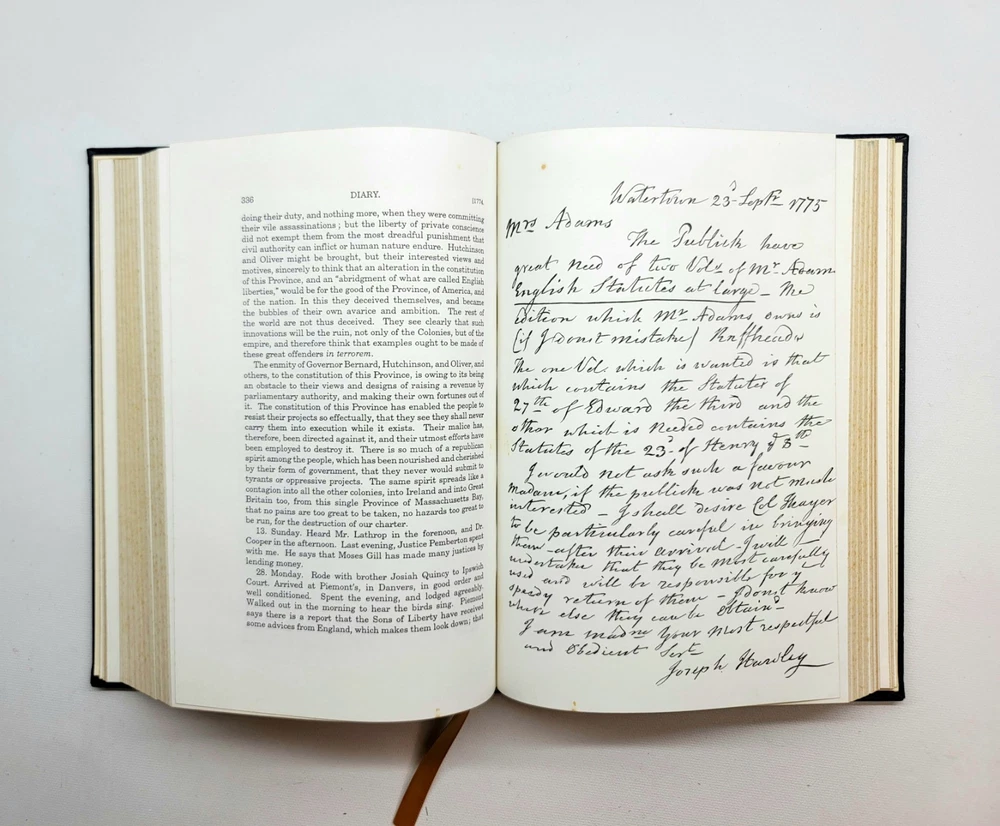 336 DIARY. [1774.
doing their duty, and nothing more, when they were committing
their vile assassinations; but the liberty of private conscience
did not exempt them from the most dreadful punishment that
civil authority can inflict or human nature endure. Hutchinson
and Oliver might be brought, but their interested views and
motives, sincerely to think that an alteration in the constitution
of this Province, and an "abridgment of what are called English
liberties," would be for the good of the Province, of America, and
of the nation. In this they deceived themselves, and became
the bubbles of their own avarice and ambition. The rest of
the world are not thus deceived. They see clearly that such
innovations will be the ruin, not only of the Colonies, but of the
empire, and therefore think that examples ought to be made of
these great offenders in terrorem.
The enmity of Governor Bernard, Hutchinson, and Oliver, and
others, to the constitution of this Province, is owing to its being
an obstacle to their views and designs of raising a revenue by
parliamentary authority, and making their own fortunes out of
it. The constitution of this Province has enabled the people to
resist their projects so effectually, that they see they shall never
carry them into execution while it exists. Their malice has,
therefore, been directed against it, and their utmost efforts have
been employed to destroy it. There is so much of a republican
spirit among the people, which has been nourished and cherished
by their form of government, that they never would submit to
tyrants or oppressive projects. The same spirit spreads like a
contagion into all the other colonies, into Ireland and into Great
Britain too, from this single Province of Massachusetts Bay,
that no pains are too great to be taken, no hazards too great to
be run, for the destruction of our charter.
13. Sunday. Heard Mr. Lathrop in the forenoon, and Dr.
Cooper in the afternoon. Last evening, Justice Pemberton spent
with me. He says that Moses Gill has made many justices by
lending money.
28. Monday. Rode with brother Josiah Quincy to Ipswich
Court. Arrived at Piemont's, in Danvers, in good order and
well conditioned. Spent the evening, and lodged agreeably.
Walked out in the morning to hear the birds sing. Piemont
says there is a report that the Sons of Liberty have received
some advices from England, which makes them look down; that
Watertown 23d Septr 1775
Mrs Adams
The Publick have
great need of two Vols of Mr. Adams
English Statutes at large – The
Edition which Mr Adams owns is
(if I don't mistake) Ruffheads
The one Vol. which is wanted is that
which contains the Statutes of
27th of Edward the third and the
other which is Needed contains the
Statutes of the 23d of Henry ye 8th
I would not ask such a favour
Madam, if the publick was not much
interested – I shall desire Col Thayer
to be particularly careful in bringing
them – after their Arrival – I will
undertake that they be most carefully
used and will be responsible for ye
speedy return of them – I don't know
where else they can be Obtaind –
I am madm Your Most respectful
and Obedient Sert
Joseph Hawley